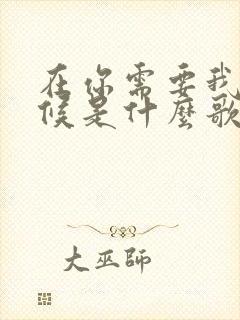 在你需要我
候是什麼歌
大巫師